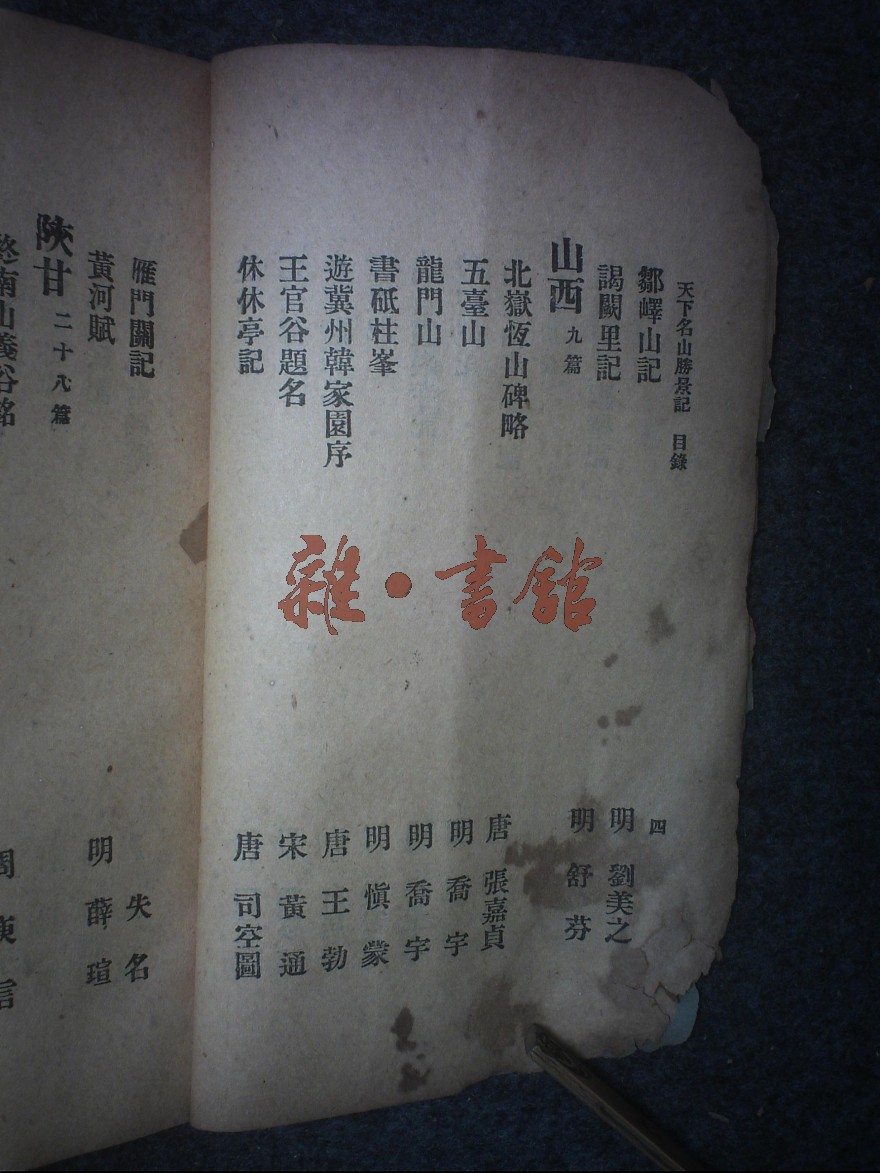 天下名山勝景記 目錄 四
鄒嶧山記 明 劉美之
謁闕里記 明 舒芬
山西 九篇
北嶽恆山碑略 唐 張嘉貞
五臺山 明 喬宇
龍門山 明 喬宇
書砥柱峯 明 愼蒙
遊冀州韓家園序 唐 王勃
王官谷題名 宋 黃通
休休亭記 唐 司空圖
雁門關記 失名
黃河賦 明 薛瑄
陝甘 二十八篇
終南山義谷銘 周 庾信
雜·書館